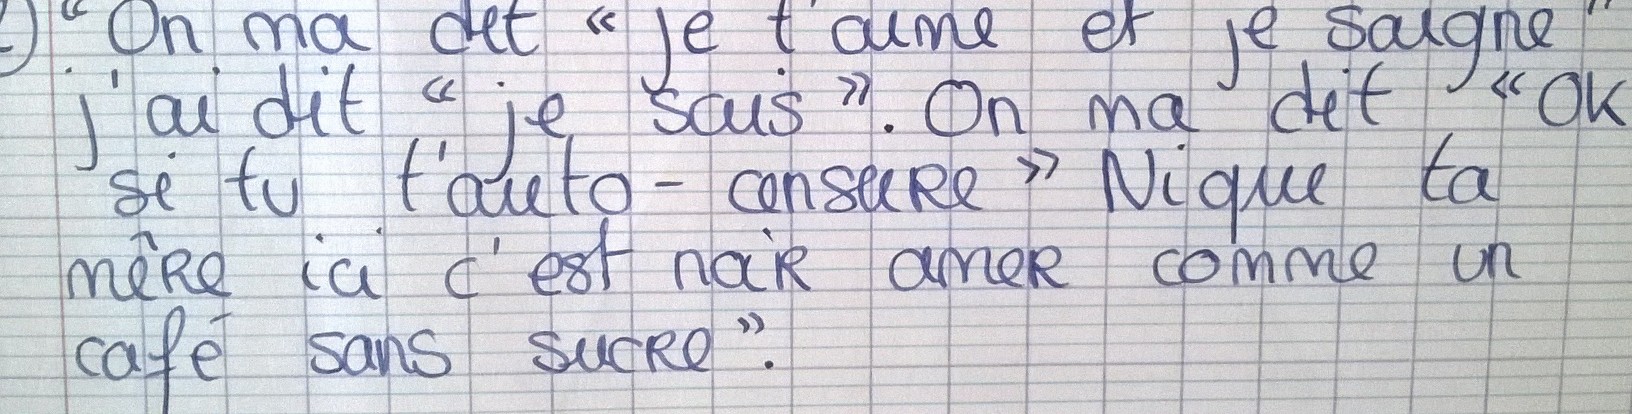 "On ma dit « je t'aime et je saigne"
j'ai dit « je sais ». On ma dit « Ok
si tu t'auto-censure » Nique ta
mère ici c'est noir amer comme un
café sans sucre".